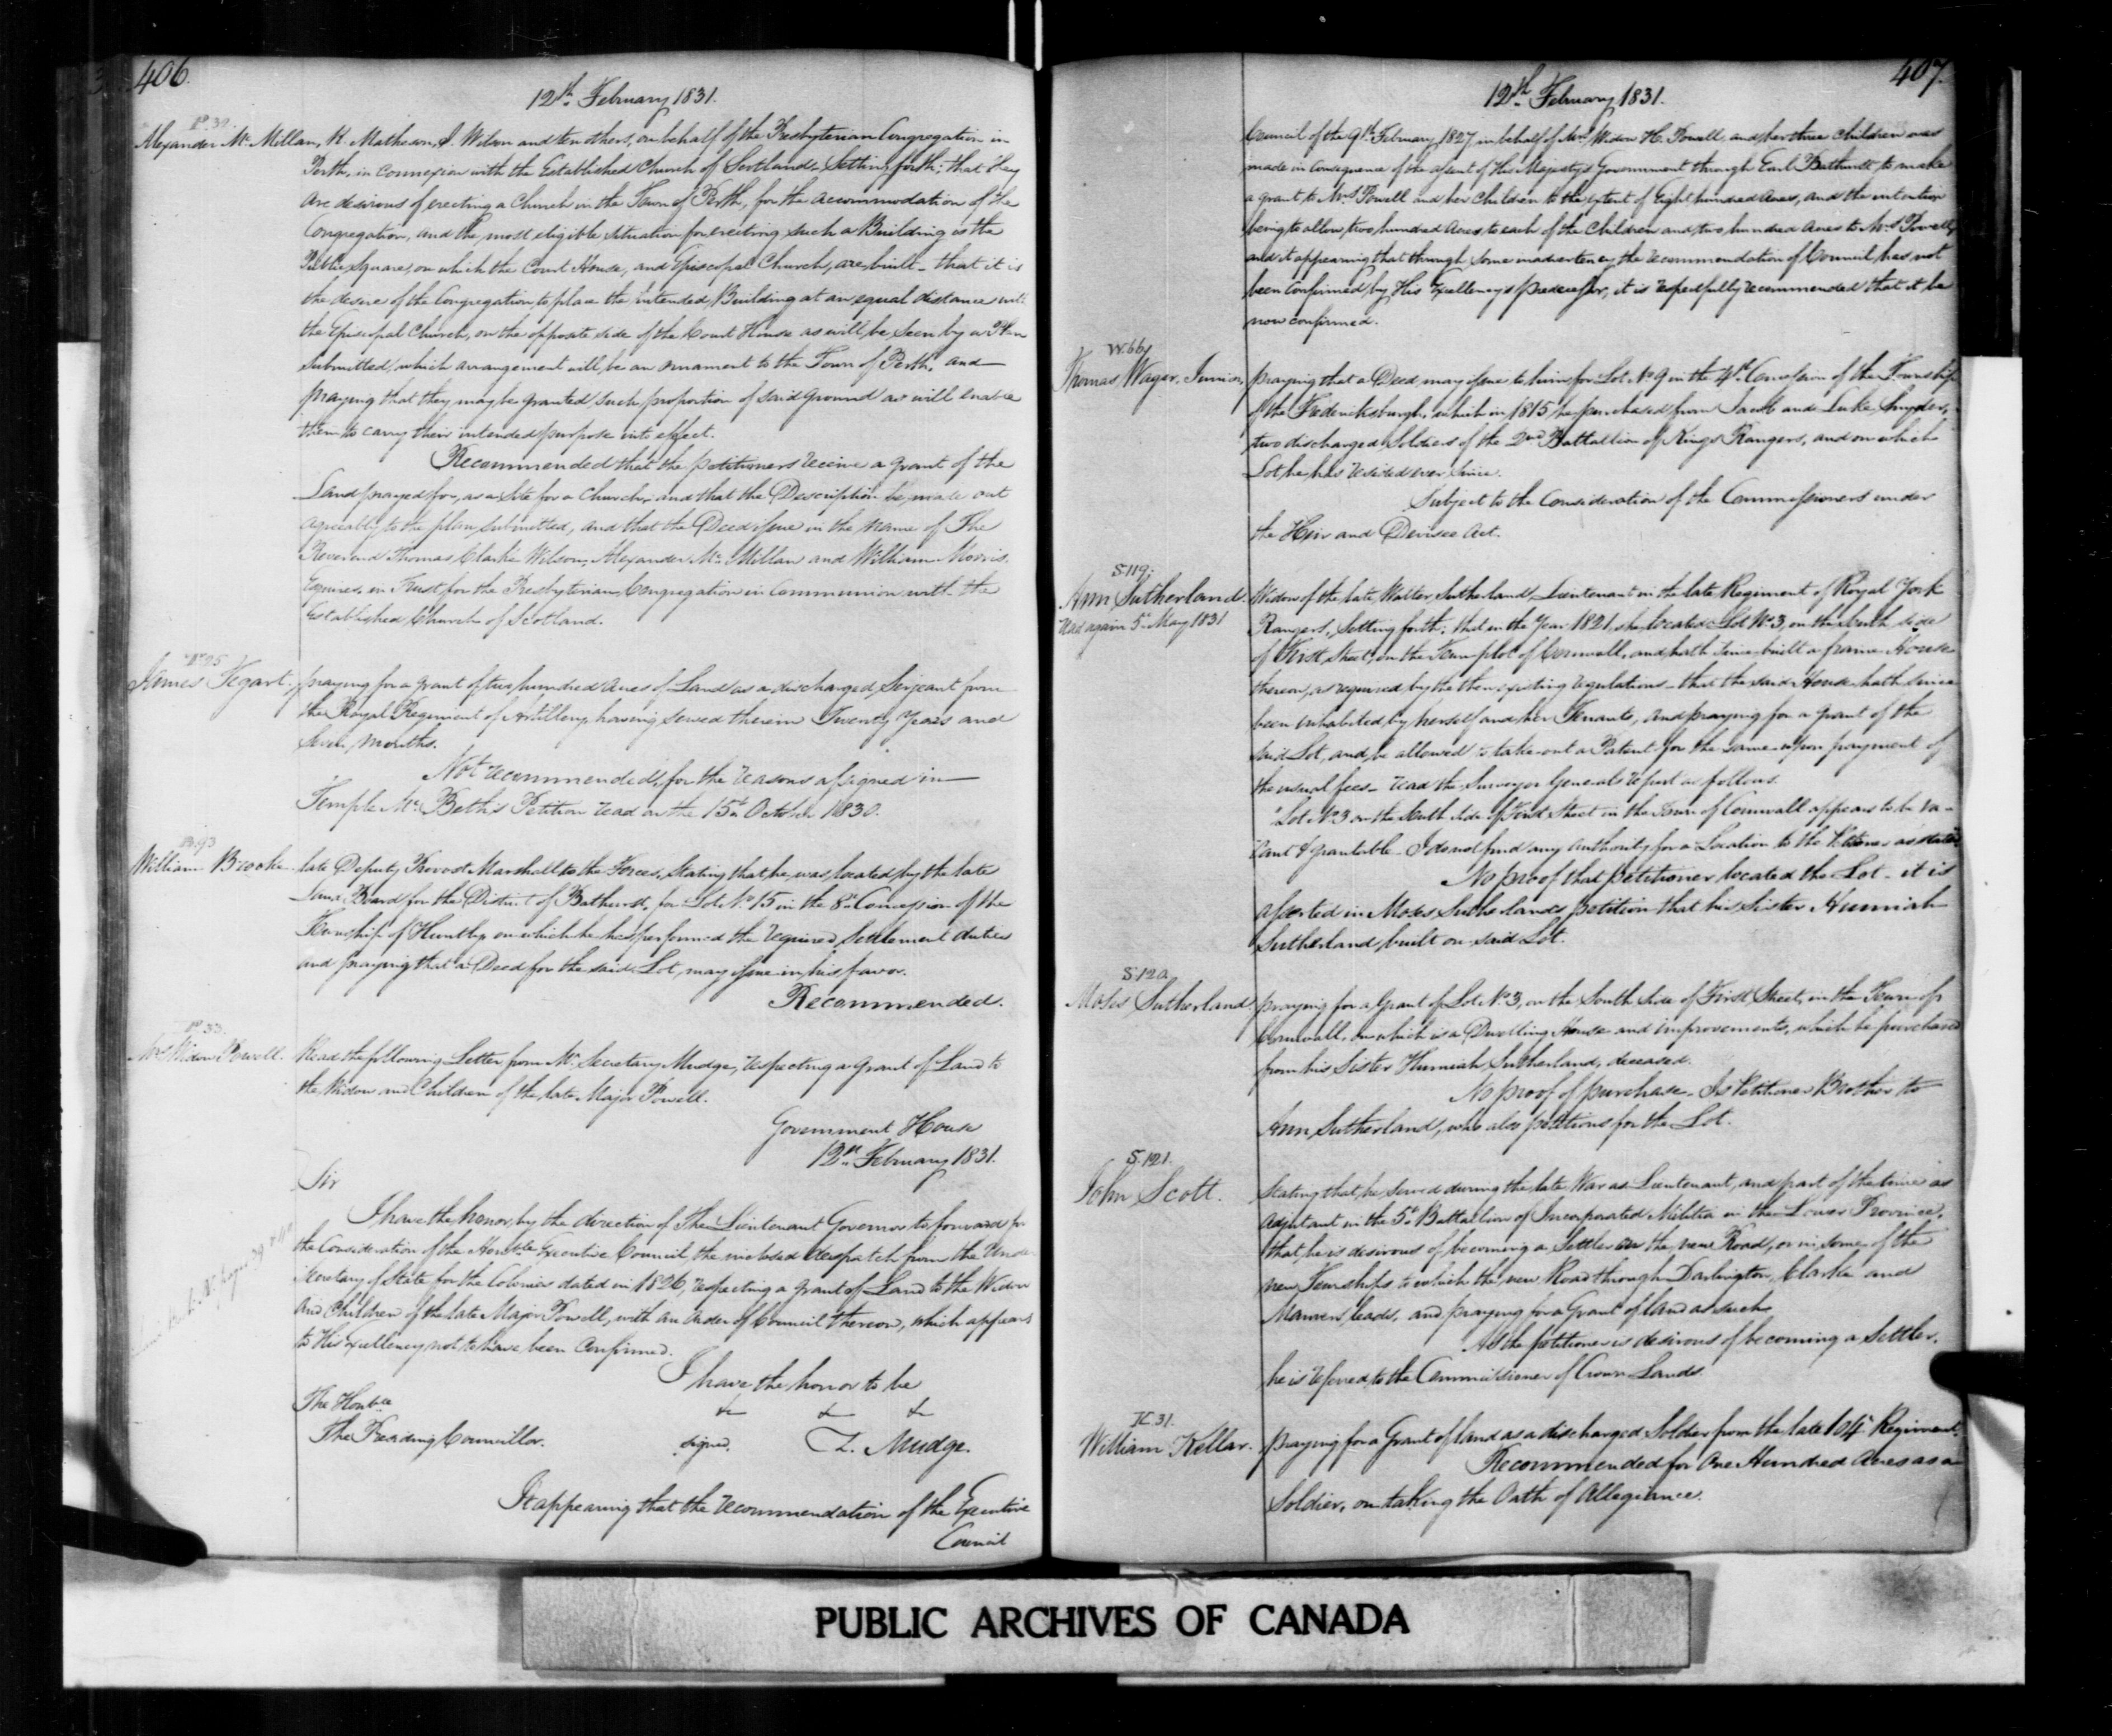 406.
12th February 1831.
P.32.
Alexander McMillan, H. Matheson, J. Wilson and ten others, on behalf of the Presbyterian Congregation in
Perth, in connexion with the Established Church of Scotland, Setting forth; that they
are desirous of erecting a Church in the Town of Perth, for the accommodation of the
Congregation, and the most eligible situation for erecting such a Building is the
Public Square, on which the Court House, and Episcopal Church, are built - that it is
the desire of the Congregation to place the intended Building at an equal distance with
the Episcopal Church, on the opposite side of the Court House as will be seen by a Plan
submitted, which arrangement will be an ornament to the Town of Perth, and
praying that they may be granted such proportion of said ground as will enable
them to carry their intended purpose into effect.
Recommended that the petitioners receive a grant of the
Land prayed for, as a Site for a Church, and that the Description be made out
agreeably to the plan submitted, and that the Deed issue in the name of The
Reverend Thomas Clarke Wilson, Alexander McMillan and William Morris
Esquires, in Trust for the Presbyterian Congregation in Communion with the
Established Church of Scotland.
James Tegart, praying for a grant of two hundred acres of Land as a discharged Serjeant from
the Royal Regiment of Artillery, having served therein Twenty Years and
seven months.
Not recommended, for the reasons assigned in
Temple McBeth's Petition read on the 15th October 1830.
B.93
William Brooke late Deputy Provost Marshall to the Forces, Stating that he was located by the late
Land Board for the District of Bathurst, for Lot No 15 in the 8th Concession of the
Township of Huntley on which he has performed the required Settlement duties
and praying that a Deed for the said Lot, may issue in his favor.
Recommended.
P.33.
Mrs Widow Powell. Read the following Letter from Mr Secretary Mudge, respecting a Grant of Land to
the Widow and Children of the late Major Powell.
Government House
12th February 1831.
Sir
I have the honor, by the direction of The Lieutenant Governor to forward for
the Consideration of the Honble Executive Council, the inclosed despatch from the Under
Secretary of State for the Colonies dated in 1826, respecting a grant of Land to the Widow
and Children of the late Major Powell, with an order of Council thereon, which appears
to His Excellency not to have been Confirmed.
I have the honor to be
&c &c &c
The Honble
The Presiding Councillor. signed. Z. Mudge.
It appearing that the recommendation of the Executive
Council
407.
12th February 1831.
Council of the 9th February 1827 in behalf of Mrs Widow H. Powell, and her three children was
made in consequence of the assent of His Majesty's Government through Earl Bathurst to make
a grant to Mrs Powell and her Children to the extent of Eight hundred Acres, and the intention
being to allow two hundred acres to each of the Children and two hundred Acres to Mrs Powell
and it appearing that through some inadvertency the recommendation of Council has not
been Confirmed by His Excellency's predecessor, it is respectfully recommended that it be
now confirmed.
W.66
Thomas Wager, Junior, praying that a Deed may issue to him for Lot No 9 in the 4th Concession of the Township
of the Fredericksburgh, which in 1815 he purchased from Jacob and Luke Snyder,
two discharged Soldiers of the 2nd Battallion of Kings Rangers, and on which
Lot he has resided ever since.
Subject to the Consideration of the Commissioners under
the Heir and Devisee Act.
S.119.
Ann Sutherland. Widow of the late Walter Sutherland Lieutenant in the late Regiment of Royal York
Read again 5th May 1831
Rangers, Setting forth; that in the Year 1821, she located Lot No 3, on the South side
of First Street, in the Town plot of Cornwall, and hath since built a frame House
thereon, as required by the then existing regulations - that the said House hath since
been inhabited by herself and her Tenants, and praying for a grant of the
said Lot, and be allowed to take out a Patent for the same upon payment of
the usual fees - read the Surveyor Generals report as follows.
"Lot No 3 on the South side of First Street in the Town of Cornwall appears to be va-
cant & grantable - I do not find any authority for a Location to the Petitioner as stated"
No proof that petitioner located the Lot - it is
asserted in Moses Sutherlands petition that his Sister Humiah
Sutherland built on said Lot.
S.120
Moses Sutherland. praying for a Grant of Lot No 3, on the South side of First Street, in the Town of
Cornwall, on which is a Dwelling House and improvements, which he purchased
from his Sister Humiah Sutherland, deceased.
No proof of purchase - Is Petitioner Brother to
Ann Sutherland, who also petitions for the Lot.
S.121.
John Scott. Stating that he served during the late War as Lieutenant, and part of the time as
Adjutant in the 5th Battallion of Incorporated Militia in the Lower Province,
that he is desirous of becoming a Settler on the new Road, or in some of the
new Townships to which the new Road through Darlington, Clarke and
Manvers leads, and praying for a Grant of land as such.
As the petitioner is desirous of becoming a Settler,
he is referred to the Commissioner of Crown Lands.
K.31.
William Kellar. praying for a Grant of land as a discharged Soldier from the late 104th Regiment.
Recommended for One Hundred Acres as a
Soldier, on taking the Oath of Allegiance.
PUBLIC ARCHIVES OF CANADA